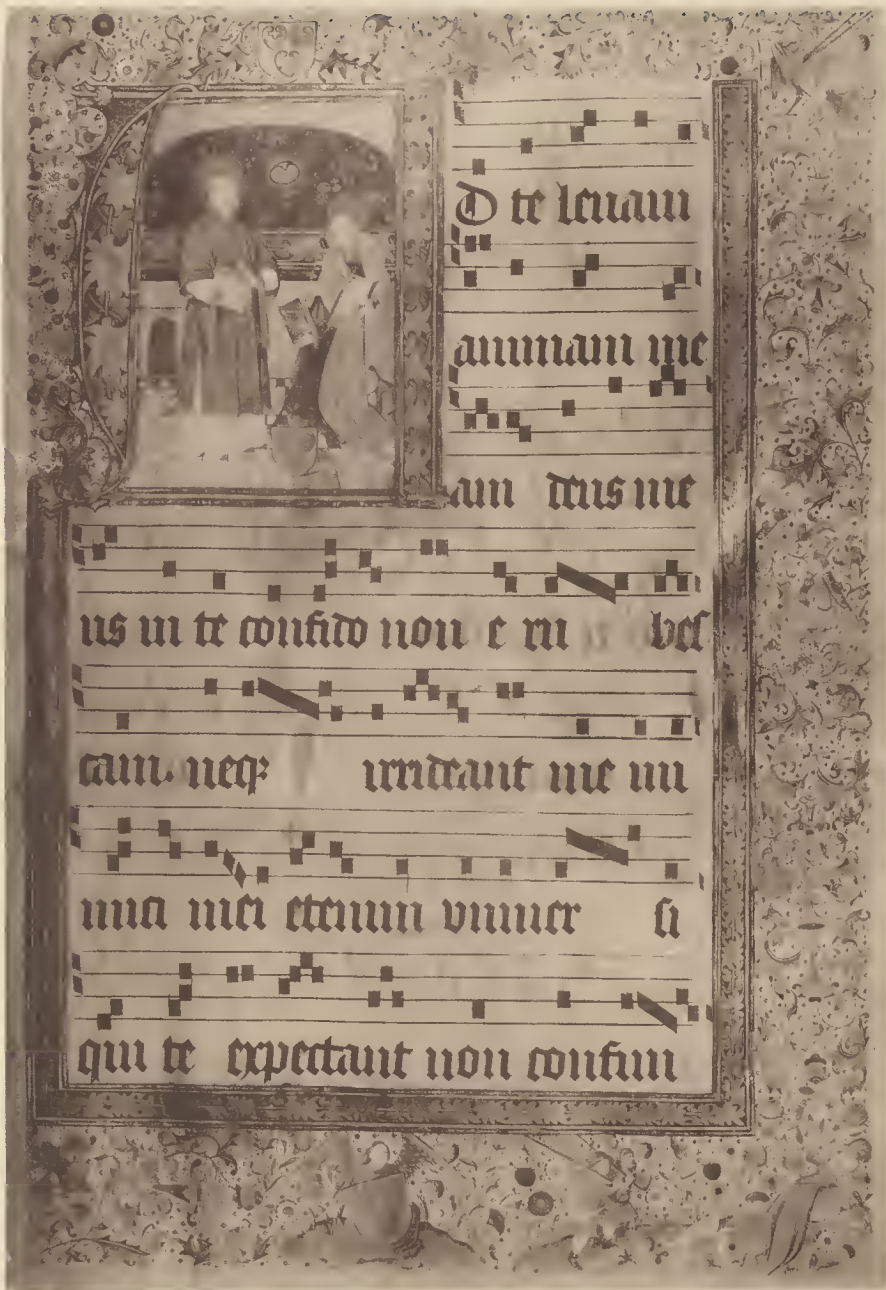 AD te leuaui
animam me
am deus me
us in te confido non e ru bes
cam. neqꝫ irrideant me ini
mici mei etenim vniuer si
qui te expectant non confun